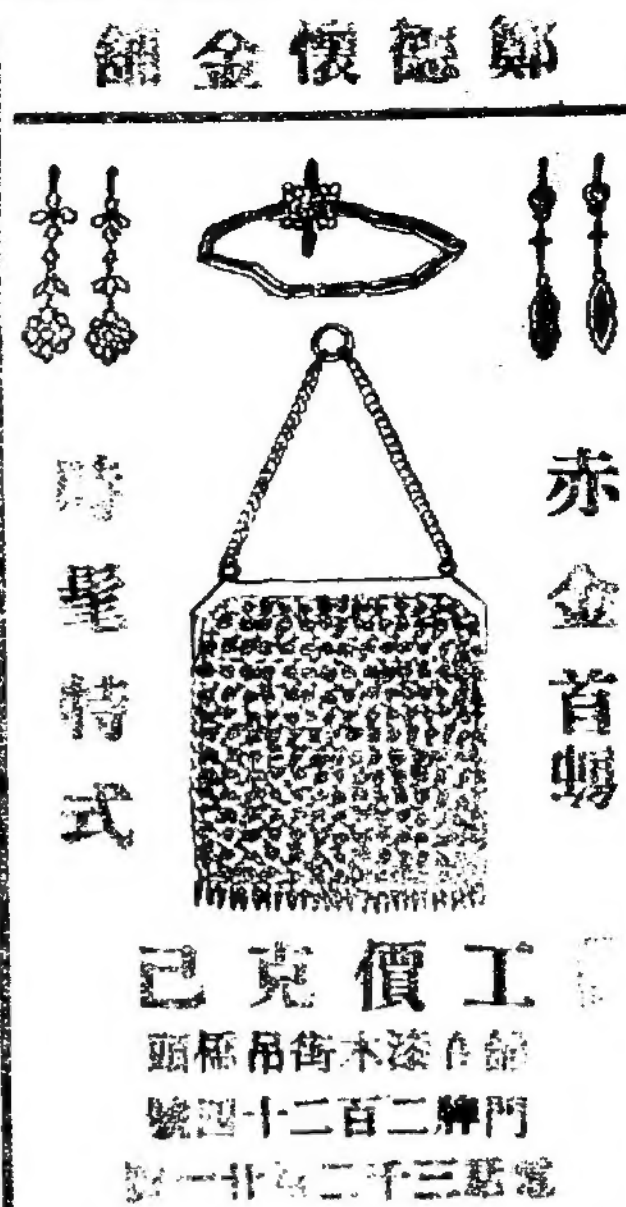 鄭德懷金鋪
赤金首飾
時髦特式
工價克己
鋪在漆木街吊橋頭
門牌二百二十四號
電話三千二百十一號